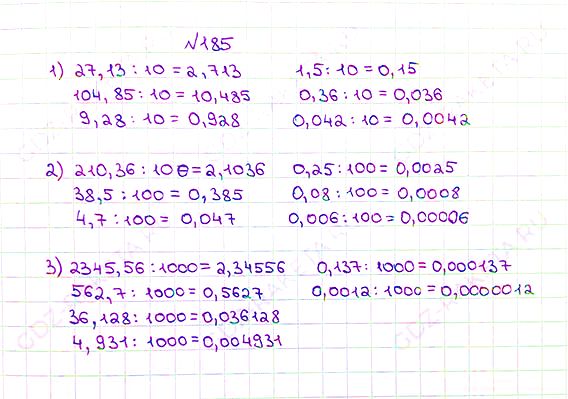 №185
1) 27,13 : 10 = 2,713 1,5 : 10 = 0,15
104,85 : 10 = 10,485 0,36 : 10 = 0,036
9,28 : 10 = 0,928 0,042 : 10 = 0,0042
2) 210,36 : 100 = 2,1036 0,25 : 100 = 0,0025
38,5 : 100 = 0,385 0,08 : 100 = 0,0008
4,7 : 100 = 0,047 0,006 : 100 = 0,00006
3) 2345,56 : 1000 = 2,34556 0,137 : 1000 = 0,000137
562,7 : 1000 = 0,5627 0,0012 : 1000 = 0,0000012
36,128 : 1000 = 0,036128
4,931 : 1000 = 0,004931